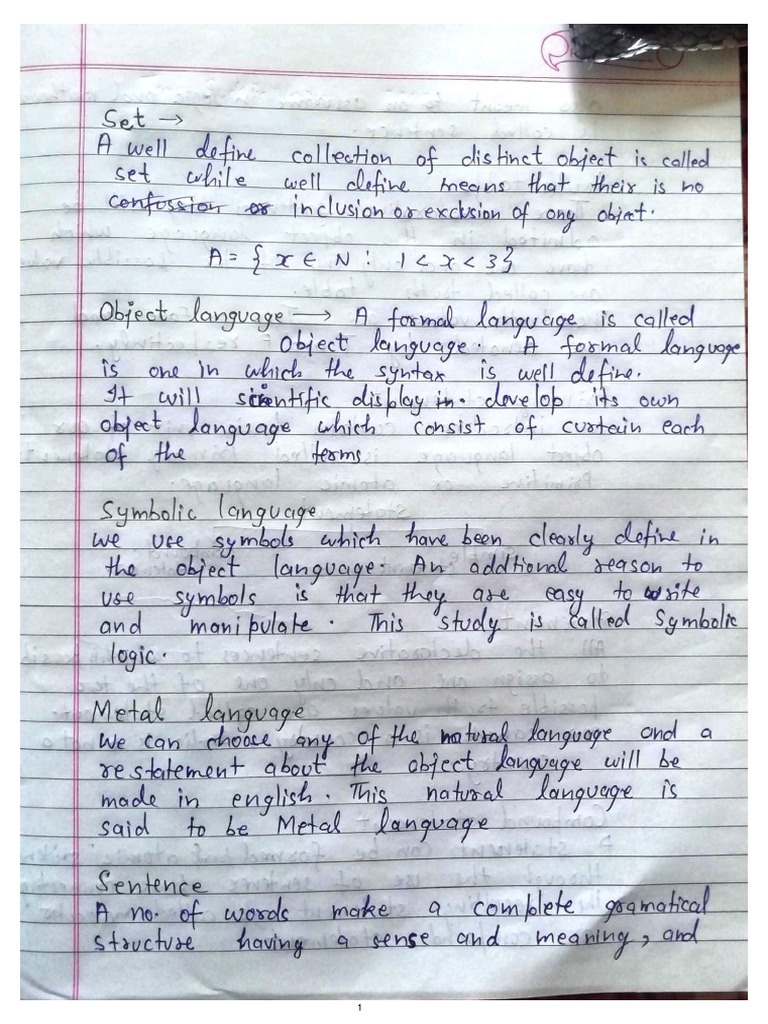 Set →
A well define collection of distinct object is called
set while well define means that their is no
confussion or inclusion or exclusion of any object.
A = { x ∈ N : 1 < x < 3 }
Object language → A formal language is called
Object language. A formal language
is one in which the syntax is well define.
It will scientific display in. develop its own
object language which consist of curtain each
of the terms
Symbolic language
We use symbols which have been clearly define in
the object language. An addtional reason to
use symbols is that they are easy to write
and manipulate. This study is called Symbolic
logic.
Metal language
We can choose any of the natural language and a
restatement about the object language will be
made in english. This natural language is
said to be Metal language
Sentence
A no. of words make a complete gramatical
structure having a sense and meaning, and
1